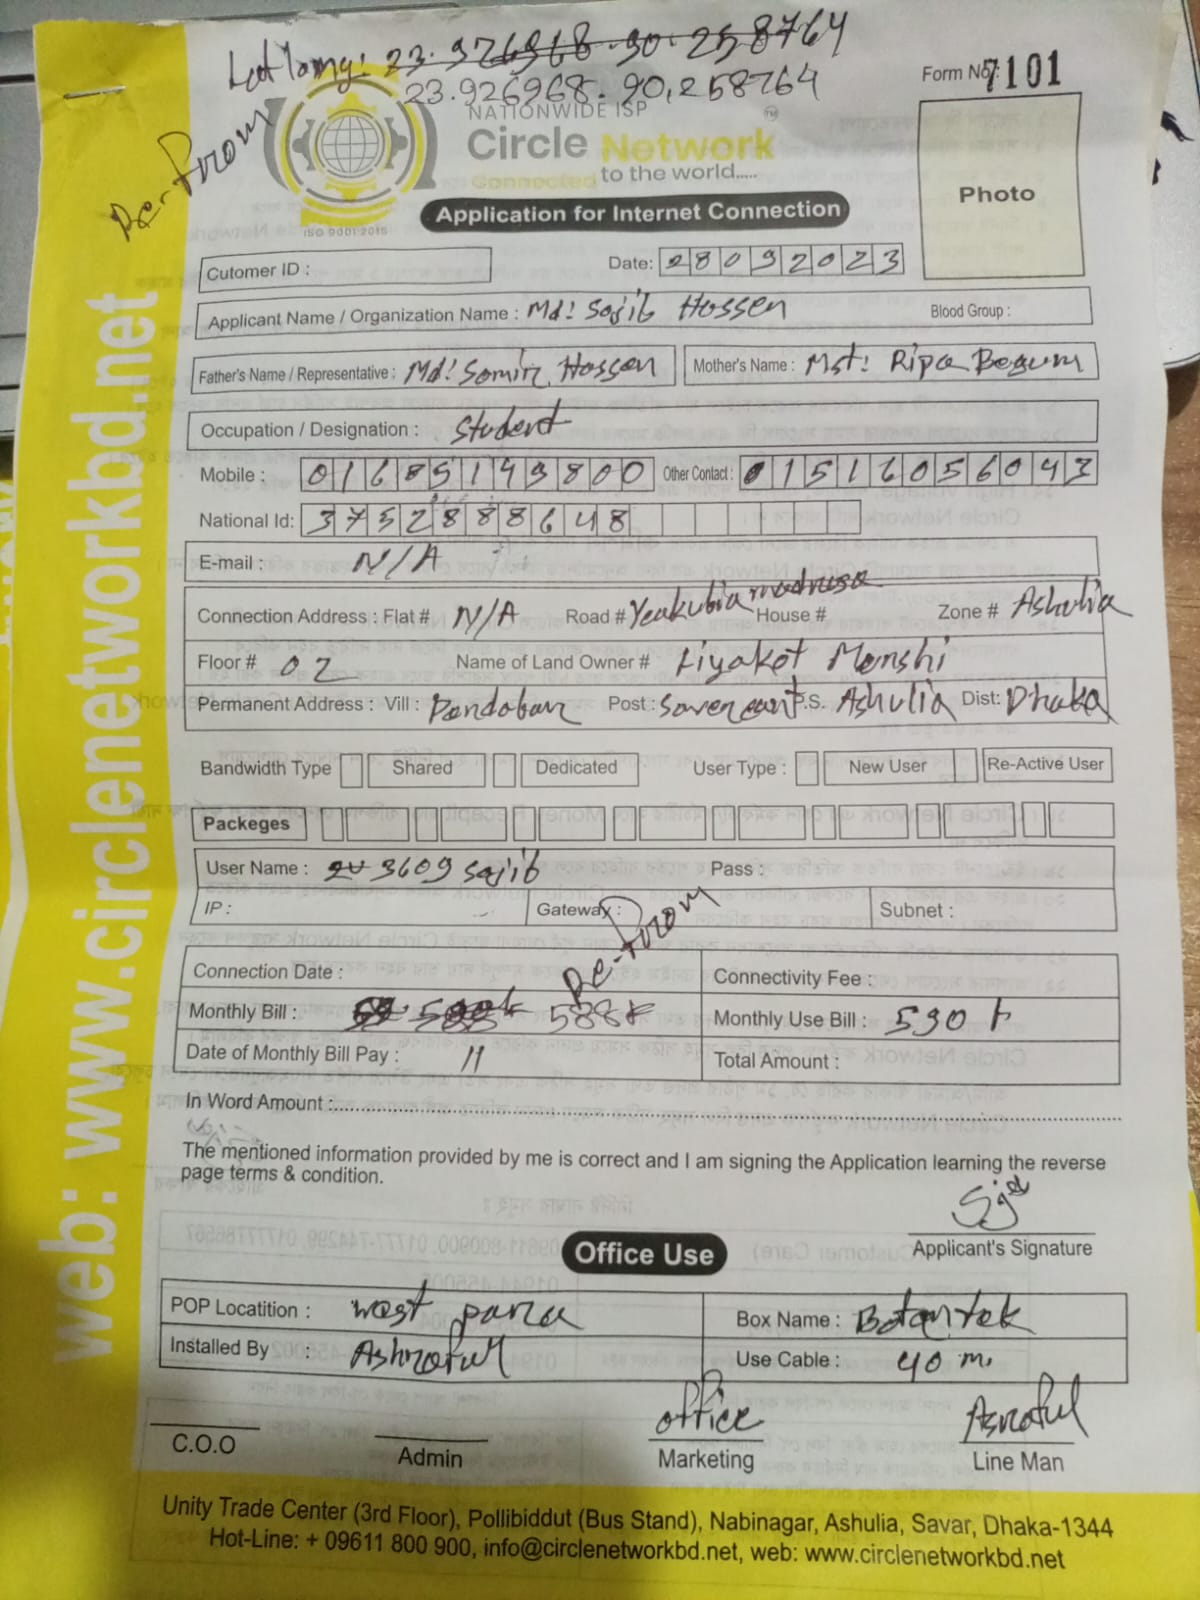 Lat long: 23.926968. 90.258764
23.926968. 90.258764
Form No: 7101
Re-From
NATIONWIDE ISP
Circle Network
Connected to the world.....
ISO 9001:2015
Photo
Application for Internet Connection
Cutomer ID :
Date: 28092023
Applicant Name / Organization Name : Md: Sajib Hossen
Blood Group :
Father's Name / Representative : Md: Samir Hossen
Mother's Name : Mst: Ripa Begum
Occupation / Designation : Student
Mobile : 01685149800 Other Contact : 01516056043
National Id: 3752888648
E-mail : N/A
Connection Address : Flat # N/A Road # Yeakubia madrasa House # Zone # Ashulia
Floor # 02 Name of Land Owner # Liyakot Monshi
Permanent Address : Vill : Pandoban Post : Savercant P.S. Ashulia Dist: Dhaka
Bandwidth Type Shared Dedicated User Type : New User Re-Active User
Packeges
User Name : 3609 sajib Pass :
IP : Gateway : Subnet :
Re-From
Connection Date : Connectivity Fee :
Monthly Bill : 588t Monthly Use Bill : 590 t
Date of Monthly Bill Pay : 11 Total Amount :
In Word Amount :
The mentioned information provided by me is correct and I am signing the Application learning the reverse
page terms & condition.
Applicant's Signature
Office Use
POP Locatition : west para Box Name : Botantek
Installed By : Ashraful Use Cable : 40 m.
office Asraful
C.O.O Admin Marketing Line Man
Unity Trade Center (3rd Floor), Pollibiddut (Bus Stand), Nabinagar, Ashulia, Savar, Dhaka-1344
Hot-Line: + 09611 800 900, info@circlenetworkbd.net, web: www.circlenetworkbd.net
web: www.circlenetworkbd.net